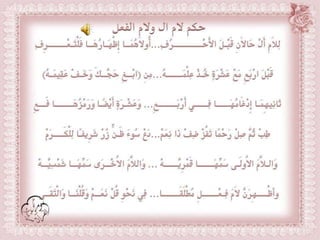 حكم لام ال ولام الفعل
لِلَامِ أَلْ حَالَانِ قَبْلَ الْأَحْرُفِ...أُولَاهُمَا إِظْهَارُهَا فَلْتَعْرِفِ
قَبْلَ ارْبَعٍ مَعْ عَشْرَةٍ خُذْ عِلْمَهُ...مِنِ (ابْغِ حَجَّكَ وَخَفْ عَقِيمَهُ)
ثَانِيهِمَا إِدْغَامُهَا فِي أَرْبَعِ...وَعَشْرَةٍ أَيْضًا وَرَمْزَهَا فَعِ
طِبْ ثُمَّ صِلْ رَحْمًا تَفُزْ ضِفْ ذَا نِعَمْ...دَعْ سُوءَ ظَنٍّ زُرْ شَرِيفًا لِلْكَرَمْ
وَاللَّامُ الْأُولَى سَمِّهَا قَمْرِيَّهْ...وَاللَّامُ الْأُخْرَى سَمِّهَا شَمْسِيَّهْ
وَأَظْهِرَنَّ لَامَ فِعْلٍ مُطْلَقَا...فِي نَحْوِ قُلْ نَعَمْ وَقُلْنَا وَالْتَقَى